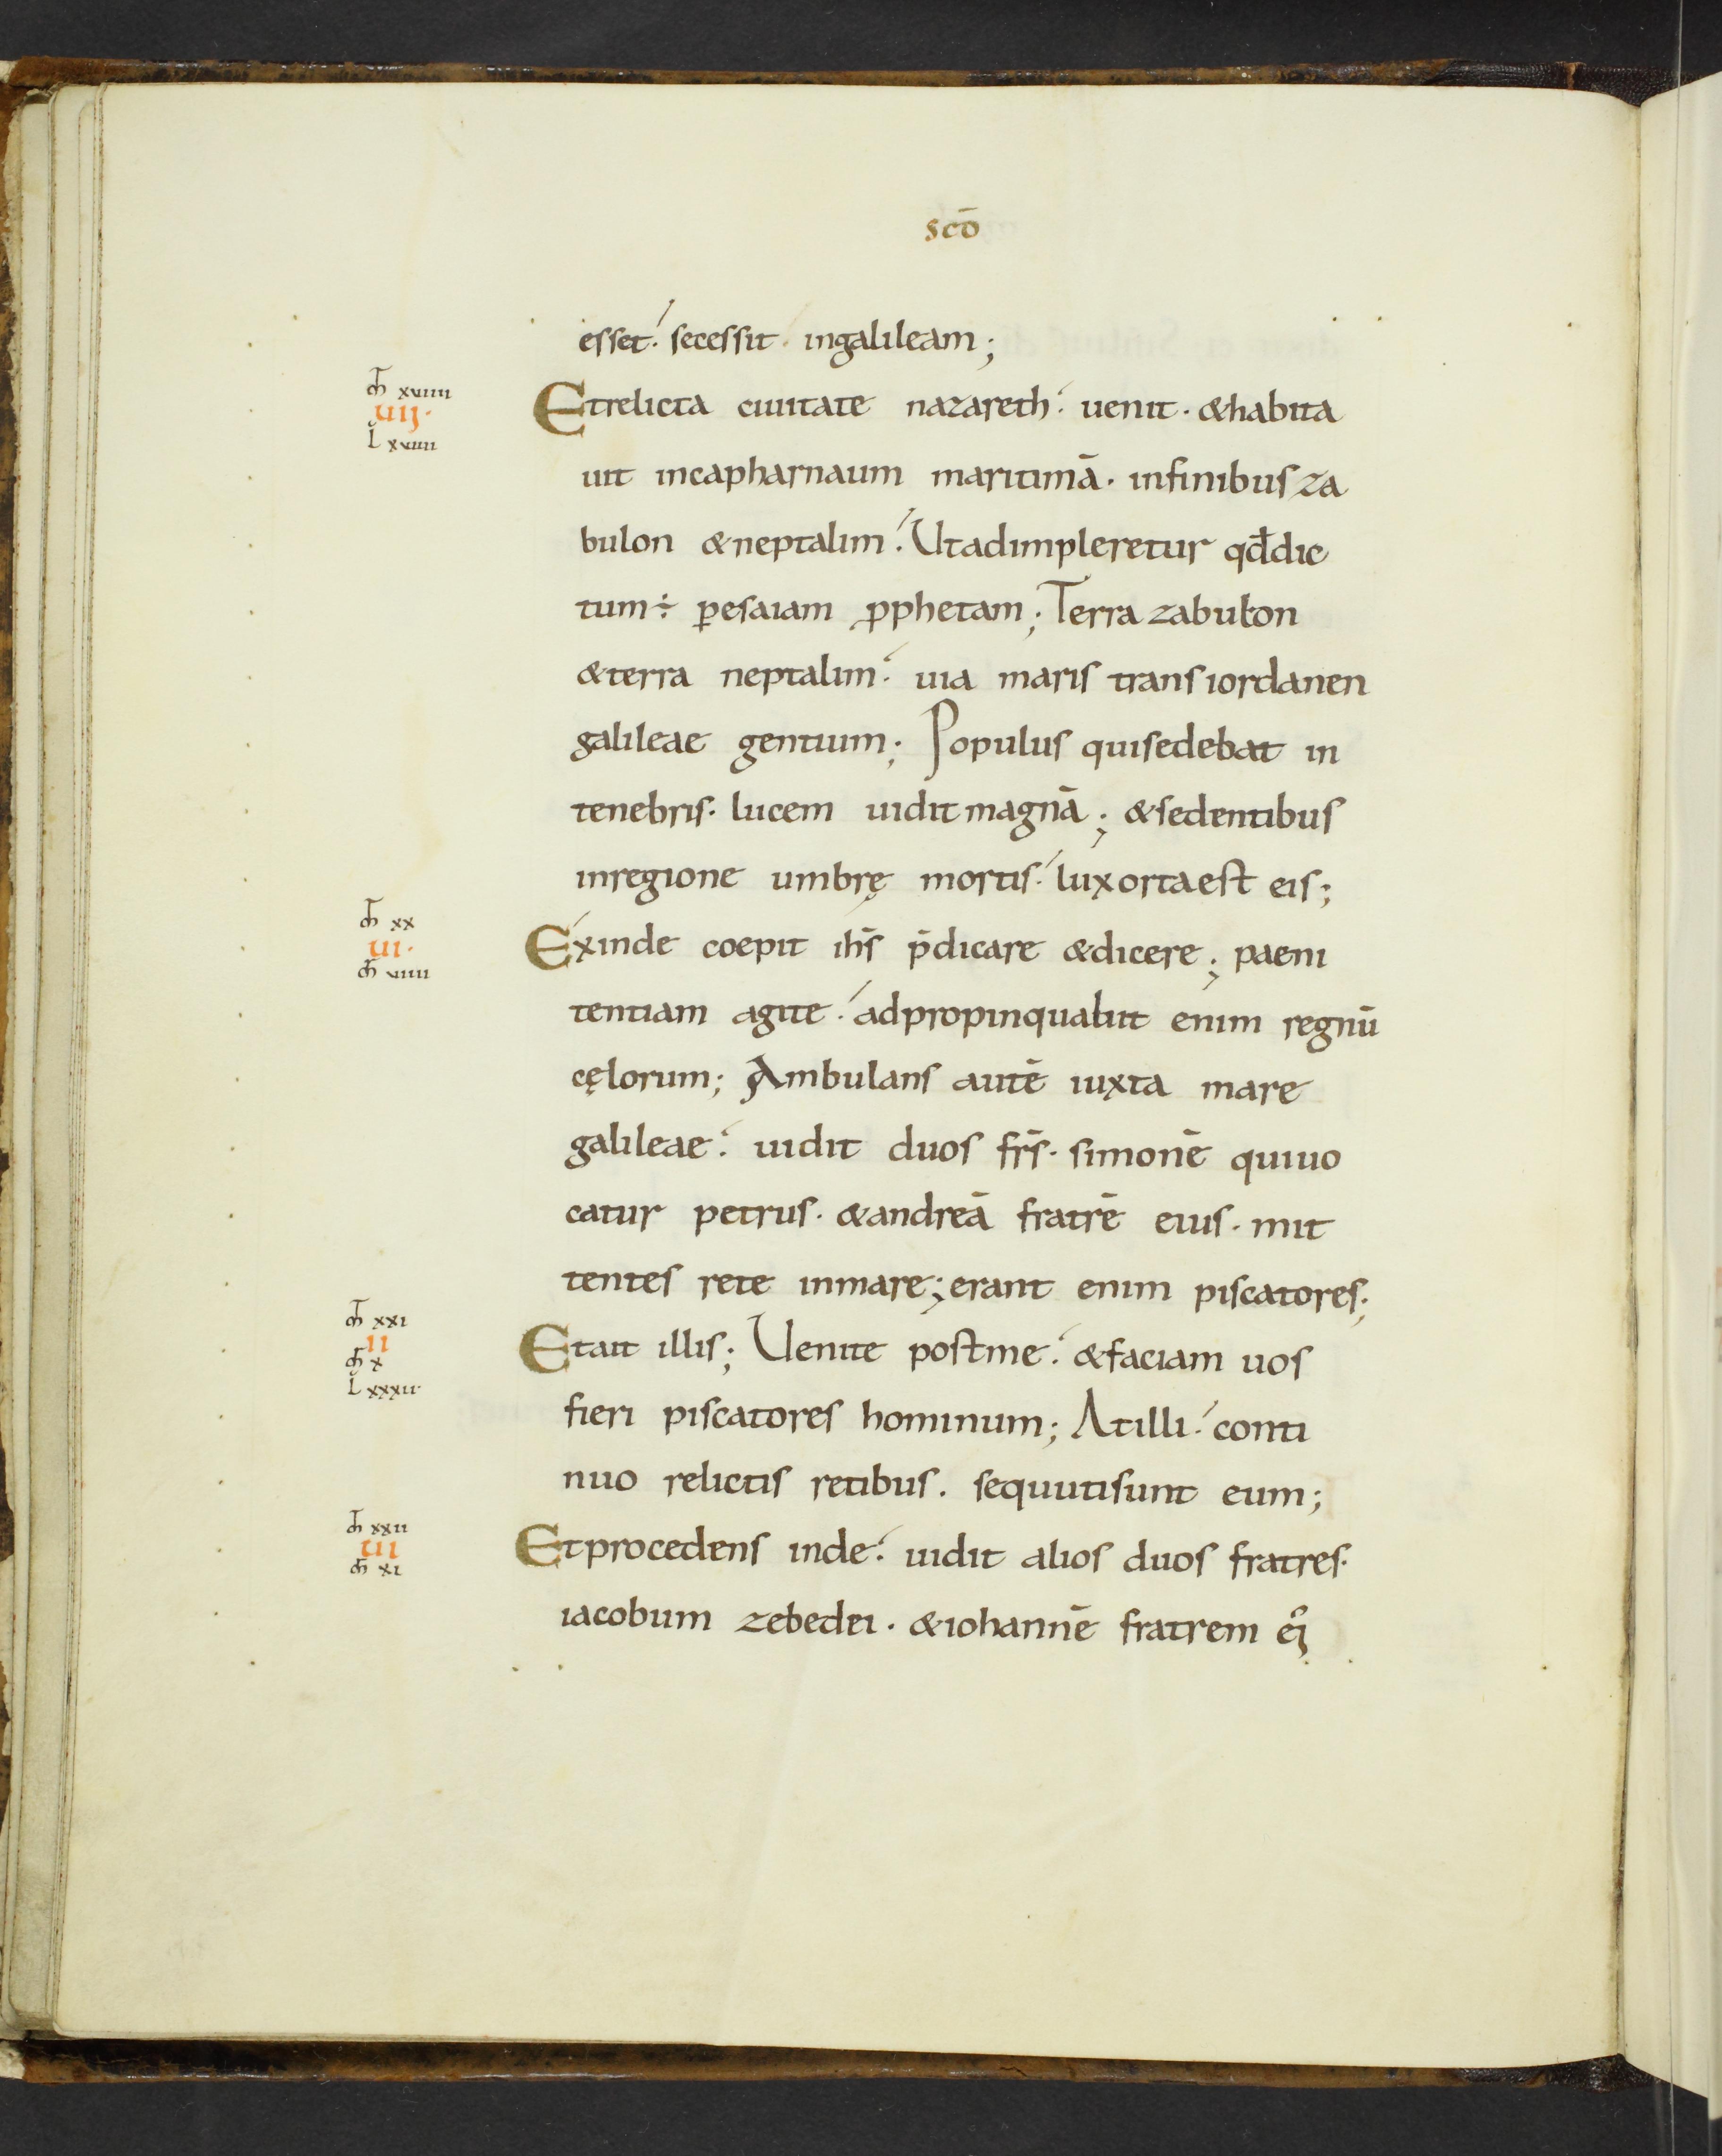 scō
esset. secessit. ingalileam;
ꝳ xviiii
uij.
L xviii
Etrelicta ciuitate nazareth. uenit. &habita
uit incapharnaum maritimā. infinibus za
bulon &neptalim. Utadimpleretur qđdic
tum ÷ ꝑesaiam ꝓphetam; Terra zabulon
&terra neptalim. uia maris trans iordanen
galileae gentium; Populus quisedebat in
tenebris. lucem uidit magnā; &sedentibus
inregione umbrę mortis. lux ortaest eis;
ꝳ xx
ui.
ꝳ viiii
Exinde coepit ihs̄ p̄dicare &dicere; paeni
tentiam agite. adpropinquabit enim regnū
cęlorum; Ambulans autē iuxta mare
galileae. uidit duos frs̄. simonē quiuo
catur petrus. &andreā fratrē eius. mit
tentes rete inmare; erant enim piscatores;
ꝳ xxi
ii
ꝳ x
L xxxii.
Etait illis; Uenite postme. &faciam uos
fieri piscatores hominum; Atilli. conti
nuo relictis retibus. sequutisunt eum;
ꝳ xxii
ui
ꝳ xi
Etprocedens inde. uidit alios duos fratres.
iacobum zebedei. &iohannē fratrem eiꝰ